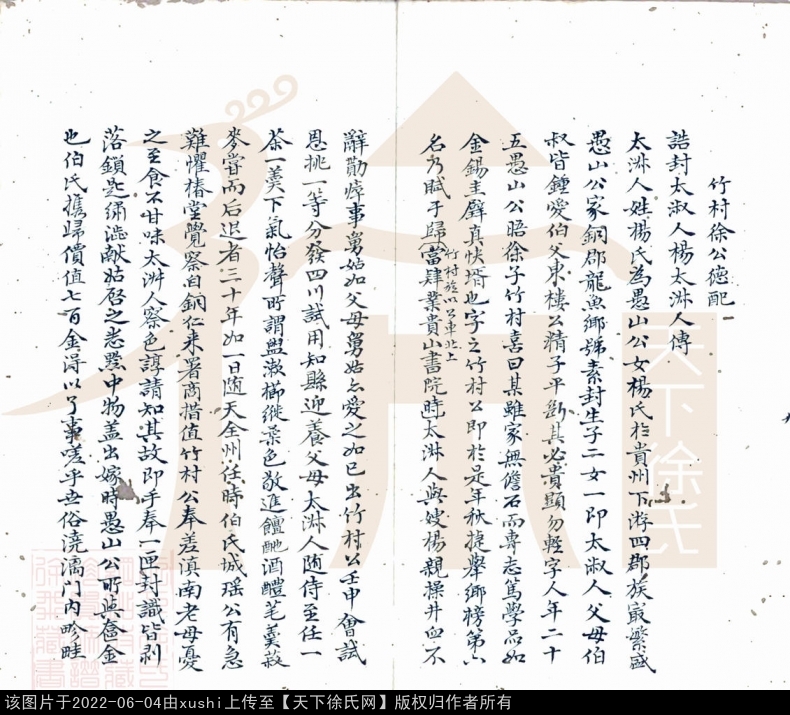 竹村徐公德配
誥封太淑人楊太淑人傳
太淑人姓楊氏為愚山公女楊氏於貴州下游四郡族最繁盛
愚山公家銅郡龍魚鄉號素封生子二女一即太淑人父母伯
叔皆鍾愛伯父東樓公精子平斷其必貴顯勿輕字人年二十
五愚山公晤徐子竹村喜曰某雖家無儋石而專志篤學品如
金錫圭璧真快壻也字之竹村公即於是年秋捷舉鄉榜第六
名乃賦于歸當肄業貴山書院時太淑人與嫂楊親操井臼不
竹村旋以公車北上
辭勤瘁事舅姑如父母舅姑亦愛之如己出竹村公壬申會試
恩挑一等分發四川試用知縣迎養父母太淑人隨侍至任一
茶一羹下氣怡聲所謂盥漱櫛縰柔色敬進饘酏酒醴芼羹菽
麥嘗而后退者三十年如一日隨天全州任時伯氏城瑤公有急
難懼椿堂覺察自銅仁来署商措值竹村公奉差滇南老母憂
之至食不甘味太淑人察色諄請知其故即手奉一匣封識皆剥
落鎖匙綉澁獻姑啓之悉黙中物蓋出嫁時愚山公所與奩金
也伯氏攜歸價值七百金得以了事嗟乎世俗澆漓門内畛畦
天下徐氏
该图片于2022-06-04由xushi上传至【天下徐氏网】版权归作者所有